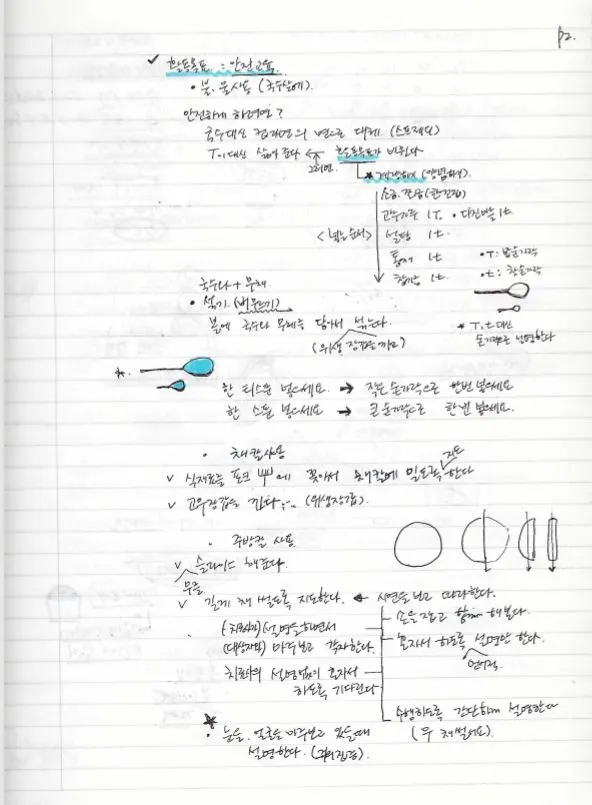 p2.
✓ 활동목표 : 안전교육.
• 불. 물사용 (국수삶기).
안전하게 하려면?
국수대신 컵라면의 면으로 대체. (스프제외)
T이 대신 삶아 준다 ← 활동목표가 바뀐다
그러면.
★ 계량하기 (양념하기).
소금. 간장 (한 큰술)
<넣는 순서>
고추가루 1T. • 다진마늘 1t.
설탕 1t.
통깨 1t
참기름 1t
• T: 밥숟가락
• t: 찻숟가락
★ T, t 대신
숟가락으로 설명한다
국수나 + 무채
• 섞기. (버무리기)
볼에 국수나 무채를 담아서 섞는다.
(위생장갑을 끼고)
*.
한 티스푼 넣으세요. → 작은 숟가락으로 한번 넣으세요
한 스푼 넣으세요 → 큰 숟가락으로 한번 넣으세요.
• 채칼사용
지도
∨ 식재료를 포크에 꽂아서 채칼에 밀도록 한다
∨ 고무장갑을 낀다; .. (위생장갑).
• 주방칼 사용
∨ 슬라이스 해준다.
무를
∨ 길게 채 썰도록 지도한다. ← 시연을 보고 따라한다.
손을 잡고 함께 해본다.
(치료사) 설명을 하면서
(대상자와) 마주보고 각자한다.
혼자서 하도록 설명만 한다.
언어적.
치료사의 설명없이 혼자서
하도록 기다린다
수행하도록 간단하게 설명한다
(무 채썰어요).
★
• 눈을. 얼굴을 마주보고 있을때
설명한다. (주의집중).